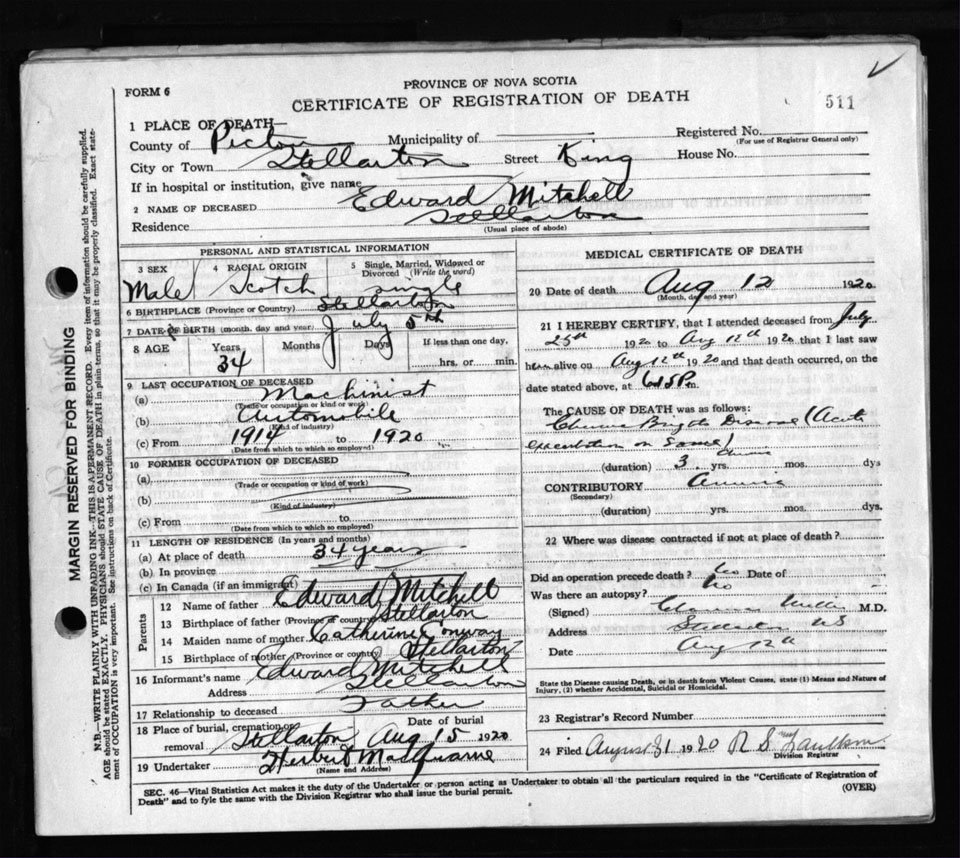 PROVINCE OF NOVA SCOTIA
FORM 6
CERTIFICATE OF REGISTRATION OF DEATH
511
1 PLACE OF DEATH—
County of Pictou Municipality of Registered No.
(For use of Registrar General only)
City or Town Stellarton Street King House No.
If in hospital or institution, give name
2 NAME OF DECEASED Edward Mitchell
Residence Stellarton
(Usual place of abode)
PERSONAL AND STATISTICAL INFORMATION
3 SEX Male
4 RACIAL ORIGIN Scotch
5 Single, Married, Widowed or Divorced (Write the word) single
6 BIRTHPLACE (Province or Country) Stellarton
7 DATE OF BIRTH (month, day and year) July 5th
8 AGE Years 34 Months Days If less than one day, hrs. or min.
9 LAST OCCUPATION OF DECEASED
(a) Machinist
(Trade or occupation or kind or work)
(b) Automobile
(Kind of industry)
(c) From 1914 to 1920
(Date from which to which so employed)
10 FORMER OCCUPATION OF DECEASED
(a)
(Trade or occupation or kind of work)
(b)
(Kind of industry)
(c) From to
(Date from which to which so employed)
11 LENGTH OF RESIDENCE (In years and months)
(a) At place of death 34 years
(b) In province
(c) In Canada (if an immigrant)
Parents
12 Name of father Edward Mitchell
13 Birthplace of father (Province or country) Stellarton
14 Maiden name of mother Catherine Conway
15 Birthplace of mother (Province or country) Stellarton
16 Informant's name Edward Mitchell
Address Stellarton
17 Relationship to deceased Father
18 Place of burial, cremation or removal Stellarton Date of burial Aug 15 1920
19 Undertaker Herbert
(Name and Address)
MEDICAL CERTIFICATE OF DEATH
20 Date of death Aug 12 1920
(Month, day and year)
21 I HEREBY CERTIFY, that I attended deceased from July
25th 1920 to Aug 12th 1920 that I last saw
him alive on Aug 12th 1920 and that death occurred, on the
date stated above, at m.
The CAUSE OF DEATH was as follows:
Disease (Acute
on Same)
(duration) 3 yrs. mos. dys
CONTRIBUTORY
(Secondary)
(duration) yrs. mos. dys.
22 Where was disease contracted if not at place of death?
Did an operation precede death? no Date of
Was there an autopsy? no
(Signed) Clarence Miller M.D.
Address Stellarton NS
Date Aug 12th
State the Disease causing Death, or in death from Violent Causes, state (1) Means and Nature of
Injury, (2) whether Accidental, Suicidal or Homicidal.
23 Registrar's Record Number
24 Filed August 31 1920 R S
Division Registrar
SEC. 46—Vital Statistics Act makes it the duty of the Undertaker or person acting as Undertaker to obtain all the particulars required in the "Certificate of Registration of
Death" and to fyle the same with the Division Registrar who shall issue the burial permit.
(OVER)
MARGIN RESERVED FOR BINDING
N.B.—WRITE PLAINLY WITH UNFADING INK—THIS IS A PERMANENT RECORD. Every item of information should be carefully supplied.
AGE should be stated EXACTLY. PHYSICIANS should STATE CAUSE OF DEATH in plain terms, so that it may be properly classified. Exact state-
ment of OCCUPATION is very important. See instructions on back of Certificate.